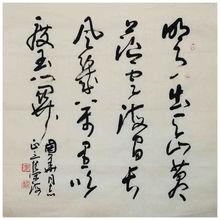 明月出天山蒼
茫雲海間長
風幾萬里吹
度玉門關
國華同志